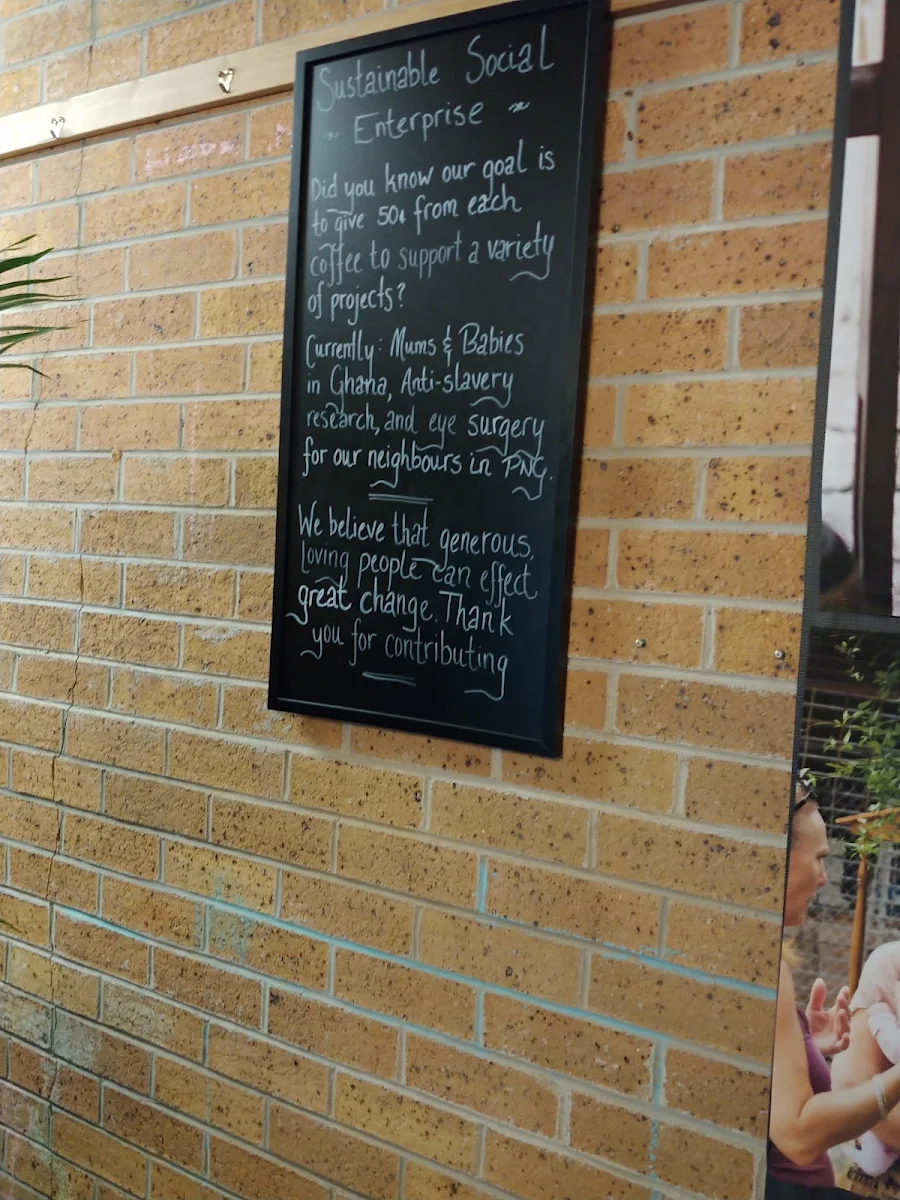 Sustainable Social
~ Enterprise ~
Did you know our goal is
to give 50¢ from each
coffee to support a variety
of projects?
Currently: Mums & Babies
in Ghana, Anti-slavery
research, and eye surgery
for our neighbours in PNG.
We believe that generous,
loving people can effect
great change. Thank
you for contributing